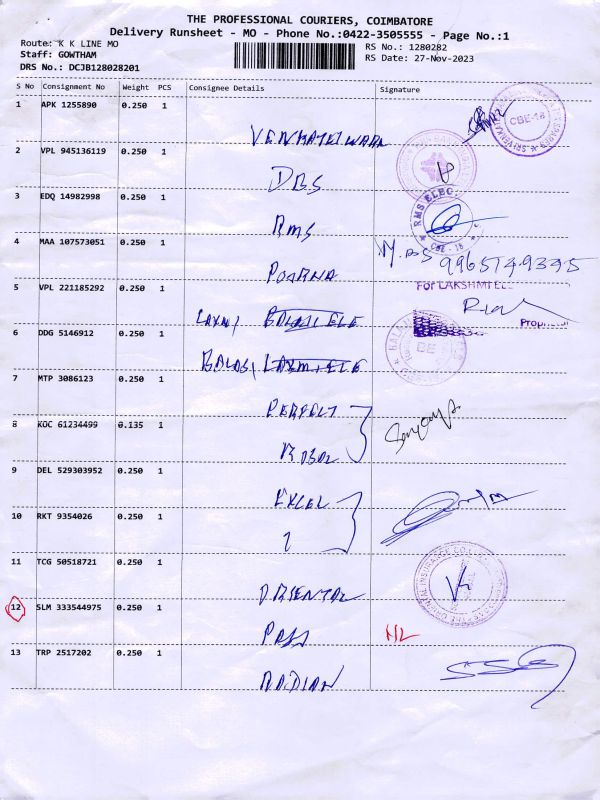 THE PROFESSIONAL COURIERS, COIMBATORE
Delivery Runsheet - MO - Phone No.:0422-3505555 - Page No.:1
Route: K K LINE MO
RS No.: 1280282
Staff: GOWTHAM
RS Date: 27-Nov-2023
DRS No.: DCJB128028201
S No Consignment No Weight PCS Consignee Details Signature
1 APK 1255890 0.250 1
CBE-18
2 VPL 945136119 0.250 1 DBS
3 EDQ 14982998 0.250 1 RMS
RMS ELEC
CBE - 18
4 MAA 107573051 0.250 1
9965749395
5 VPL 221185292 0.250 1 LAXMI
For LAKSHMI ELE
6 DDG 5146912 0.250 1 BALAJI
7 MTP 3086123 0.250 1 PERFECT
8 KOC 61234499 0.135 1
9 DEL 529303952 0.250 1 EXCEL
10 RKT 9354026 0.250 1
11 TCG 50518721 0.250 1 ORIENTAL
ORIENTAL INSURANCE CO
12 SLM 333544975 0.250 1 PASS
13 TRP 2517202 0.250 1 RADIAN